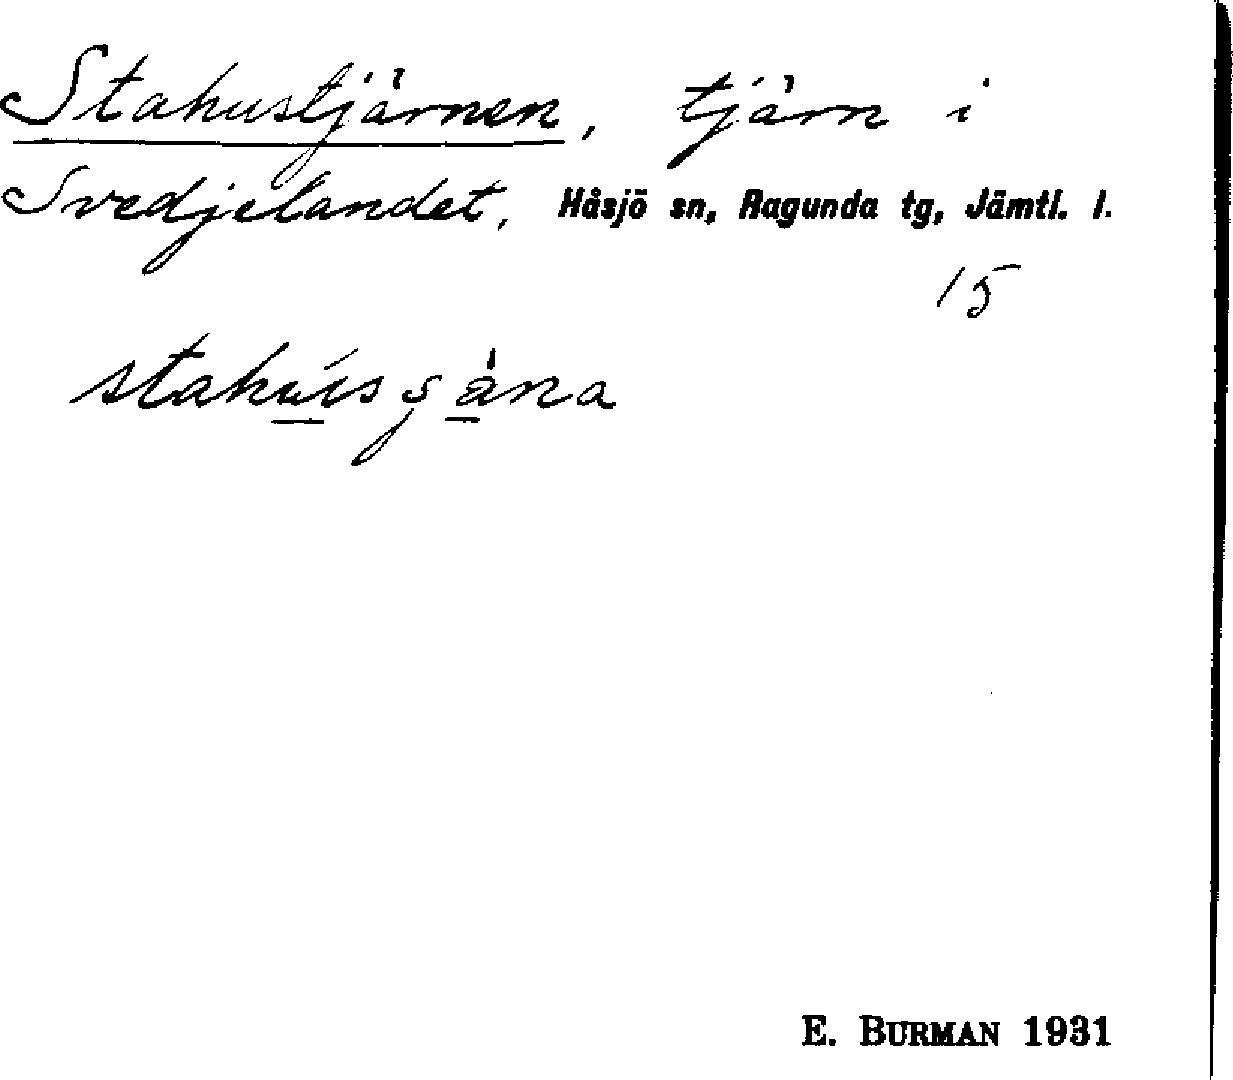 Stahustjärnen, tjärn i
Svedjelandet, Håsjö sn, Ragunda tg, Jämtl. l.
15
E. BURMAN 1931